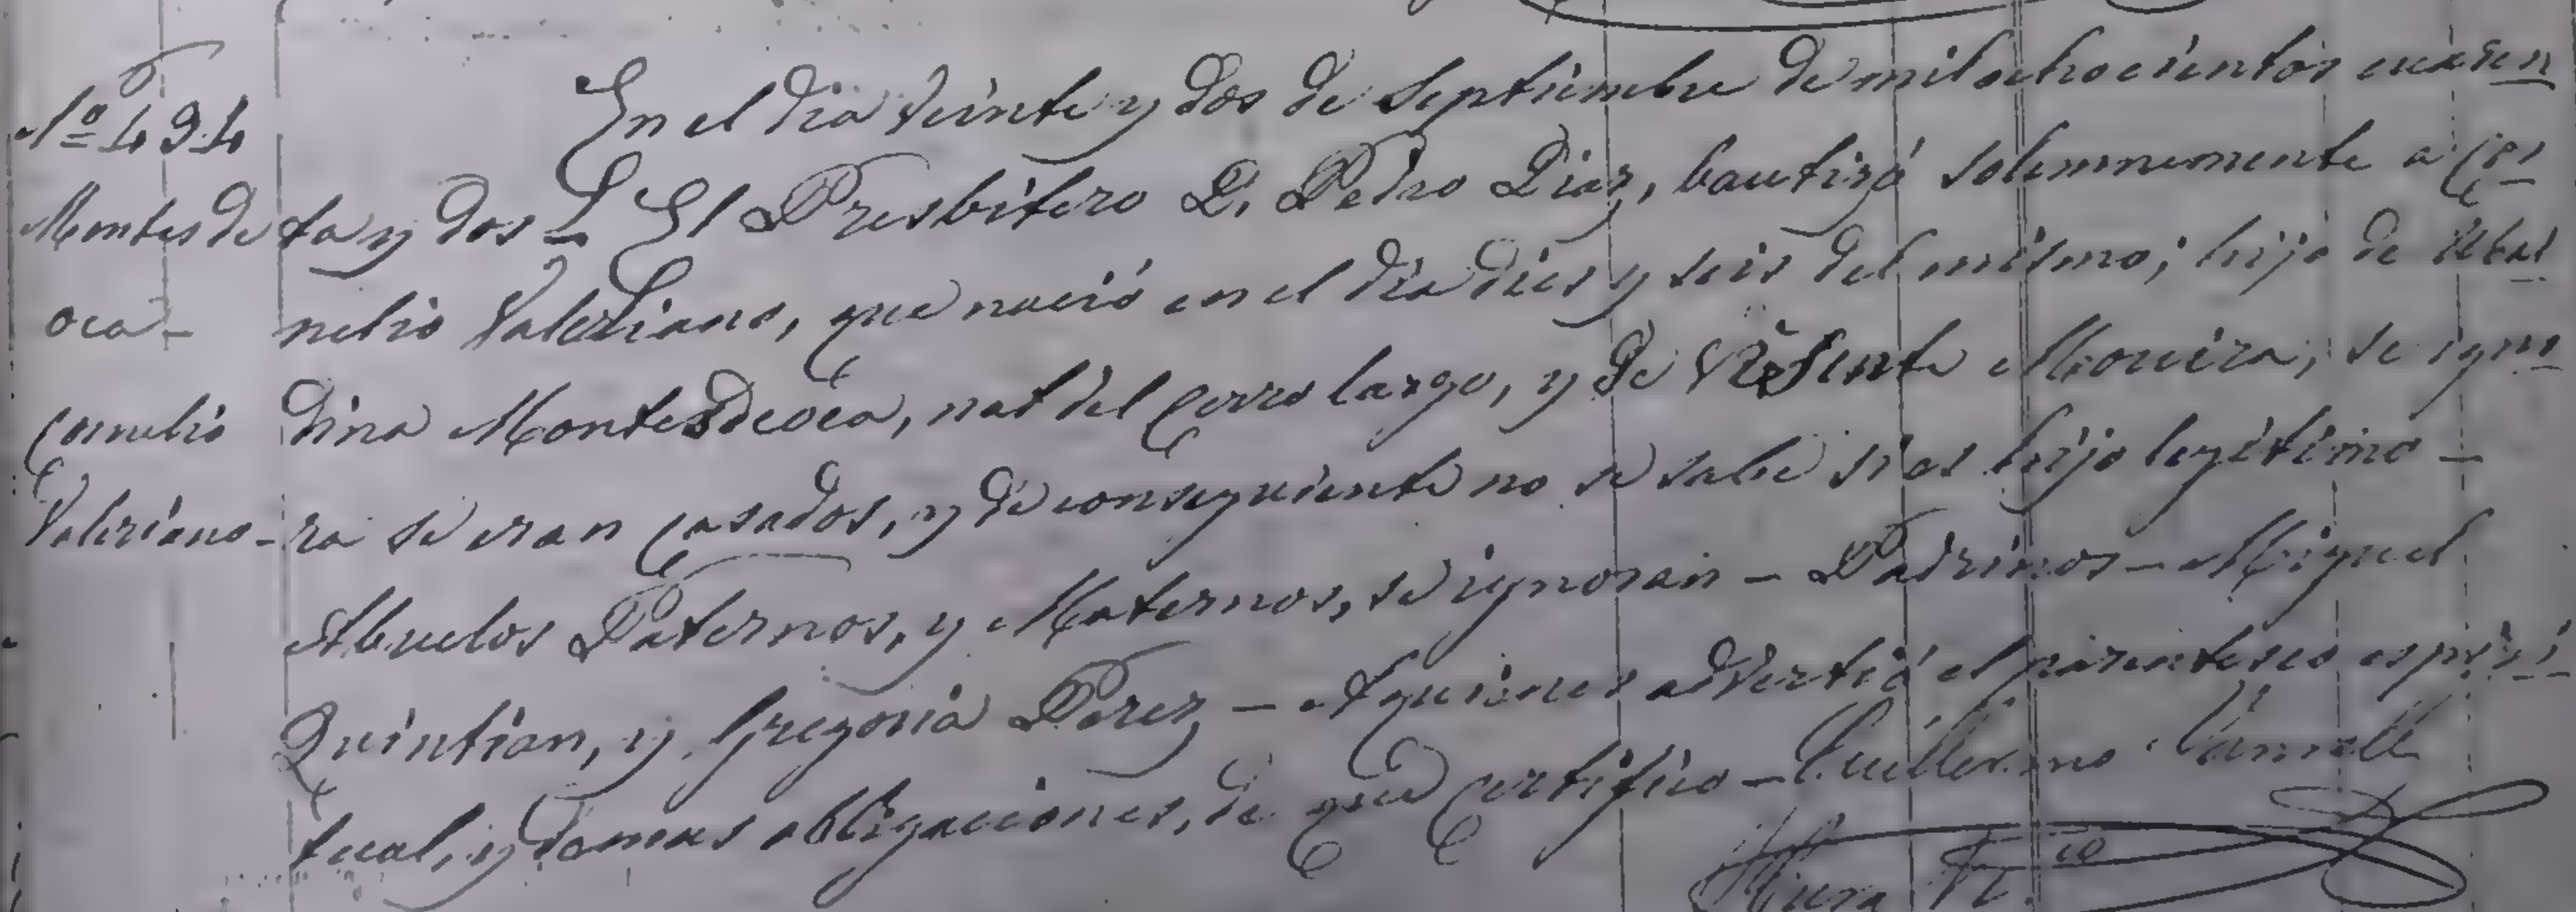 Nº 494
Montes de
oca -
Cornelio
Valeriano -
En el dia Veinte y dos de Septiembre de mil ochocientos cuaren
ta y dos = El Presbitero D. Pedro Diaz, bautizó solemnemente a Cor
nelio Valeriano, que nació en el dia dies y seis del mismo; hijo de Ubal
dina Montesdeoca, nat. del Cerro largo, y de Visente Moreira; se igno
ra se eran Casados, y de consiguiente no se sabe si es hijo legitimo -
Abuelos Paternos, y Maternos, se ignoran - Padrinos - Miguel
Quintian, y Gregoria Perez - A quienes advertió el parentesco espiri
tual, y demas obligaciones, de que Certifico - Guillermo
Cura